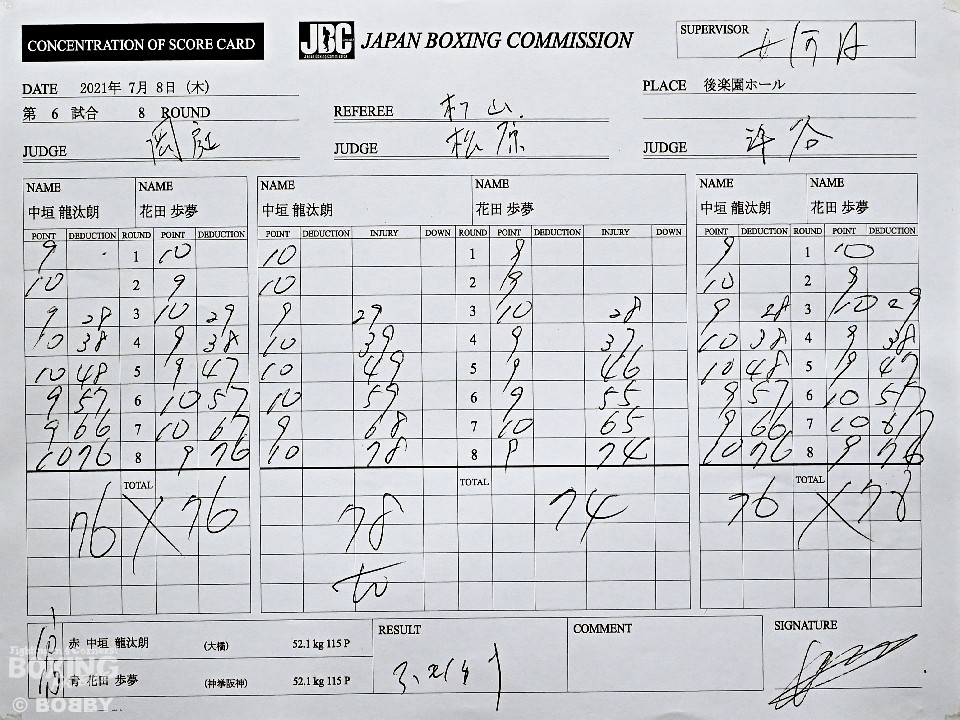 CONCENTRATION OF SCORE CARD
JBC JAPAN BOXING COMMISSION
SUPERVISOR
DATE 2021年 7月 8日 (木)
PLACE 後楽園ホール
第 6 試合 8 ROUND
REFEREE 村山
JUDGE
JUDGE 松原
JUDGE
NAME NAME NAME NAME NAME NAME
中垣 龍汰朗 花田 歩夢 中垣 龍汰朗 花田 歩夢 中垣 龍汰朗 花田 歩夢
POINT DEDUCTION ROUND POINT DEDUCTION POINT DEDUCTION INJURY DOWN ROUND POINT DEDUCTION INJURY DOWN POINT DEDUCTION ROUND POINT DEDUCTION
9 1 10 10 1 9 1 10
10 2 9 10 2 9 10 2 9
9 28 3 10 29 9 29 3 10 28 9 28 3 10 29
10 38 4 9 38 10 39 4 9 37 10 38 4 9 38
10 48 5 9 47 10 49 5 9 46 10 48 5 9 47
9 57 6 10 57 10 59 6 9 55 9 57 6 10 57
9 66 7 10 67 9 68 7 10 65 9 66 7 10 67
10 76 8 9 76 10 78 8 74 10 76 8 9 76
TOTAL TOTAL TOTAL
76 76 78 74 76
赤 中垣 龍汰朗 (大橋) 52.1 kg 115 P
青 花田 歩夢 (神拳阪神) 52.1 kg 115 P
RESULT
COMMENT
SIGNATURE
BOXING
© BOBBY